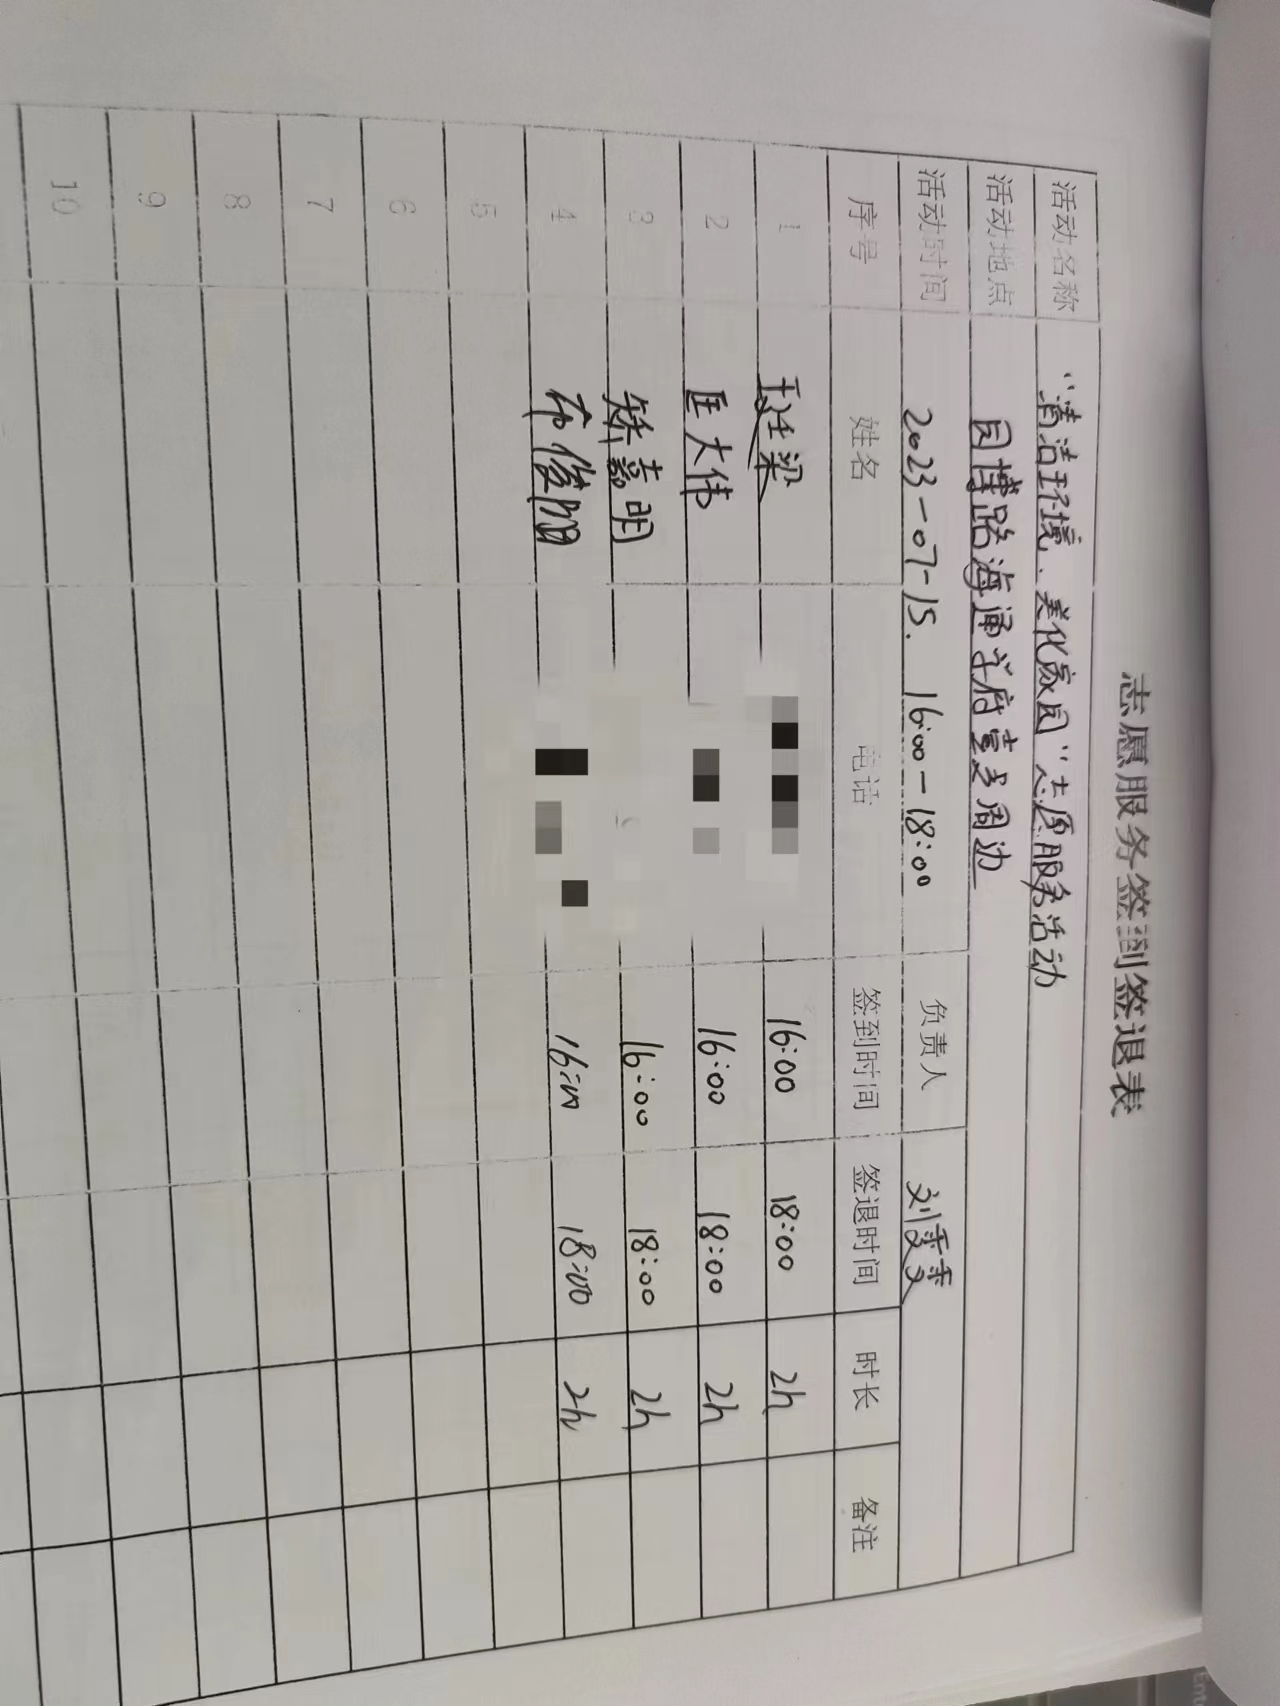 志愿服务签到签退表
活动名称 “清洁环境、美化家园”志愿服务活动
活动地点 园博路海通学府墅周边
活动时间 2023-07-15. 16:00-18:00 负责人 刘雯雯
序号 姓名 电话 签到时间 签退时间 时长 备注
1 16:00 18:00 2h
2 匡大伟 16:00 18:00 2h
3 矫嘉明 16:00 18:00 2h
4 16:00 18:00 2h
5
6
7
8
9
10